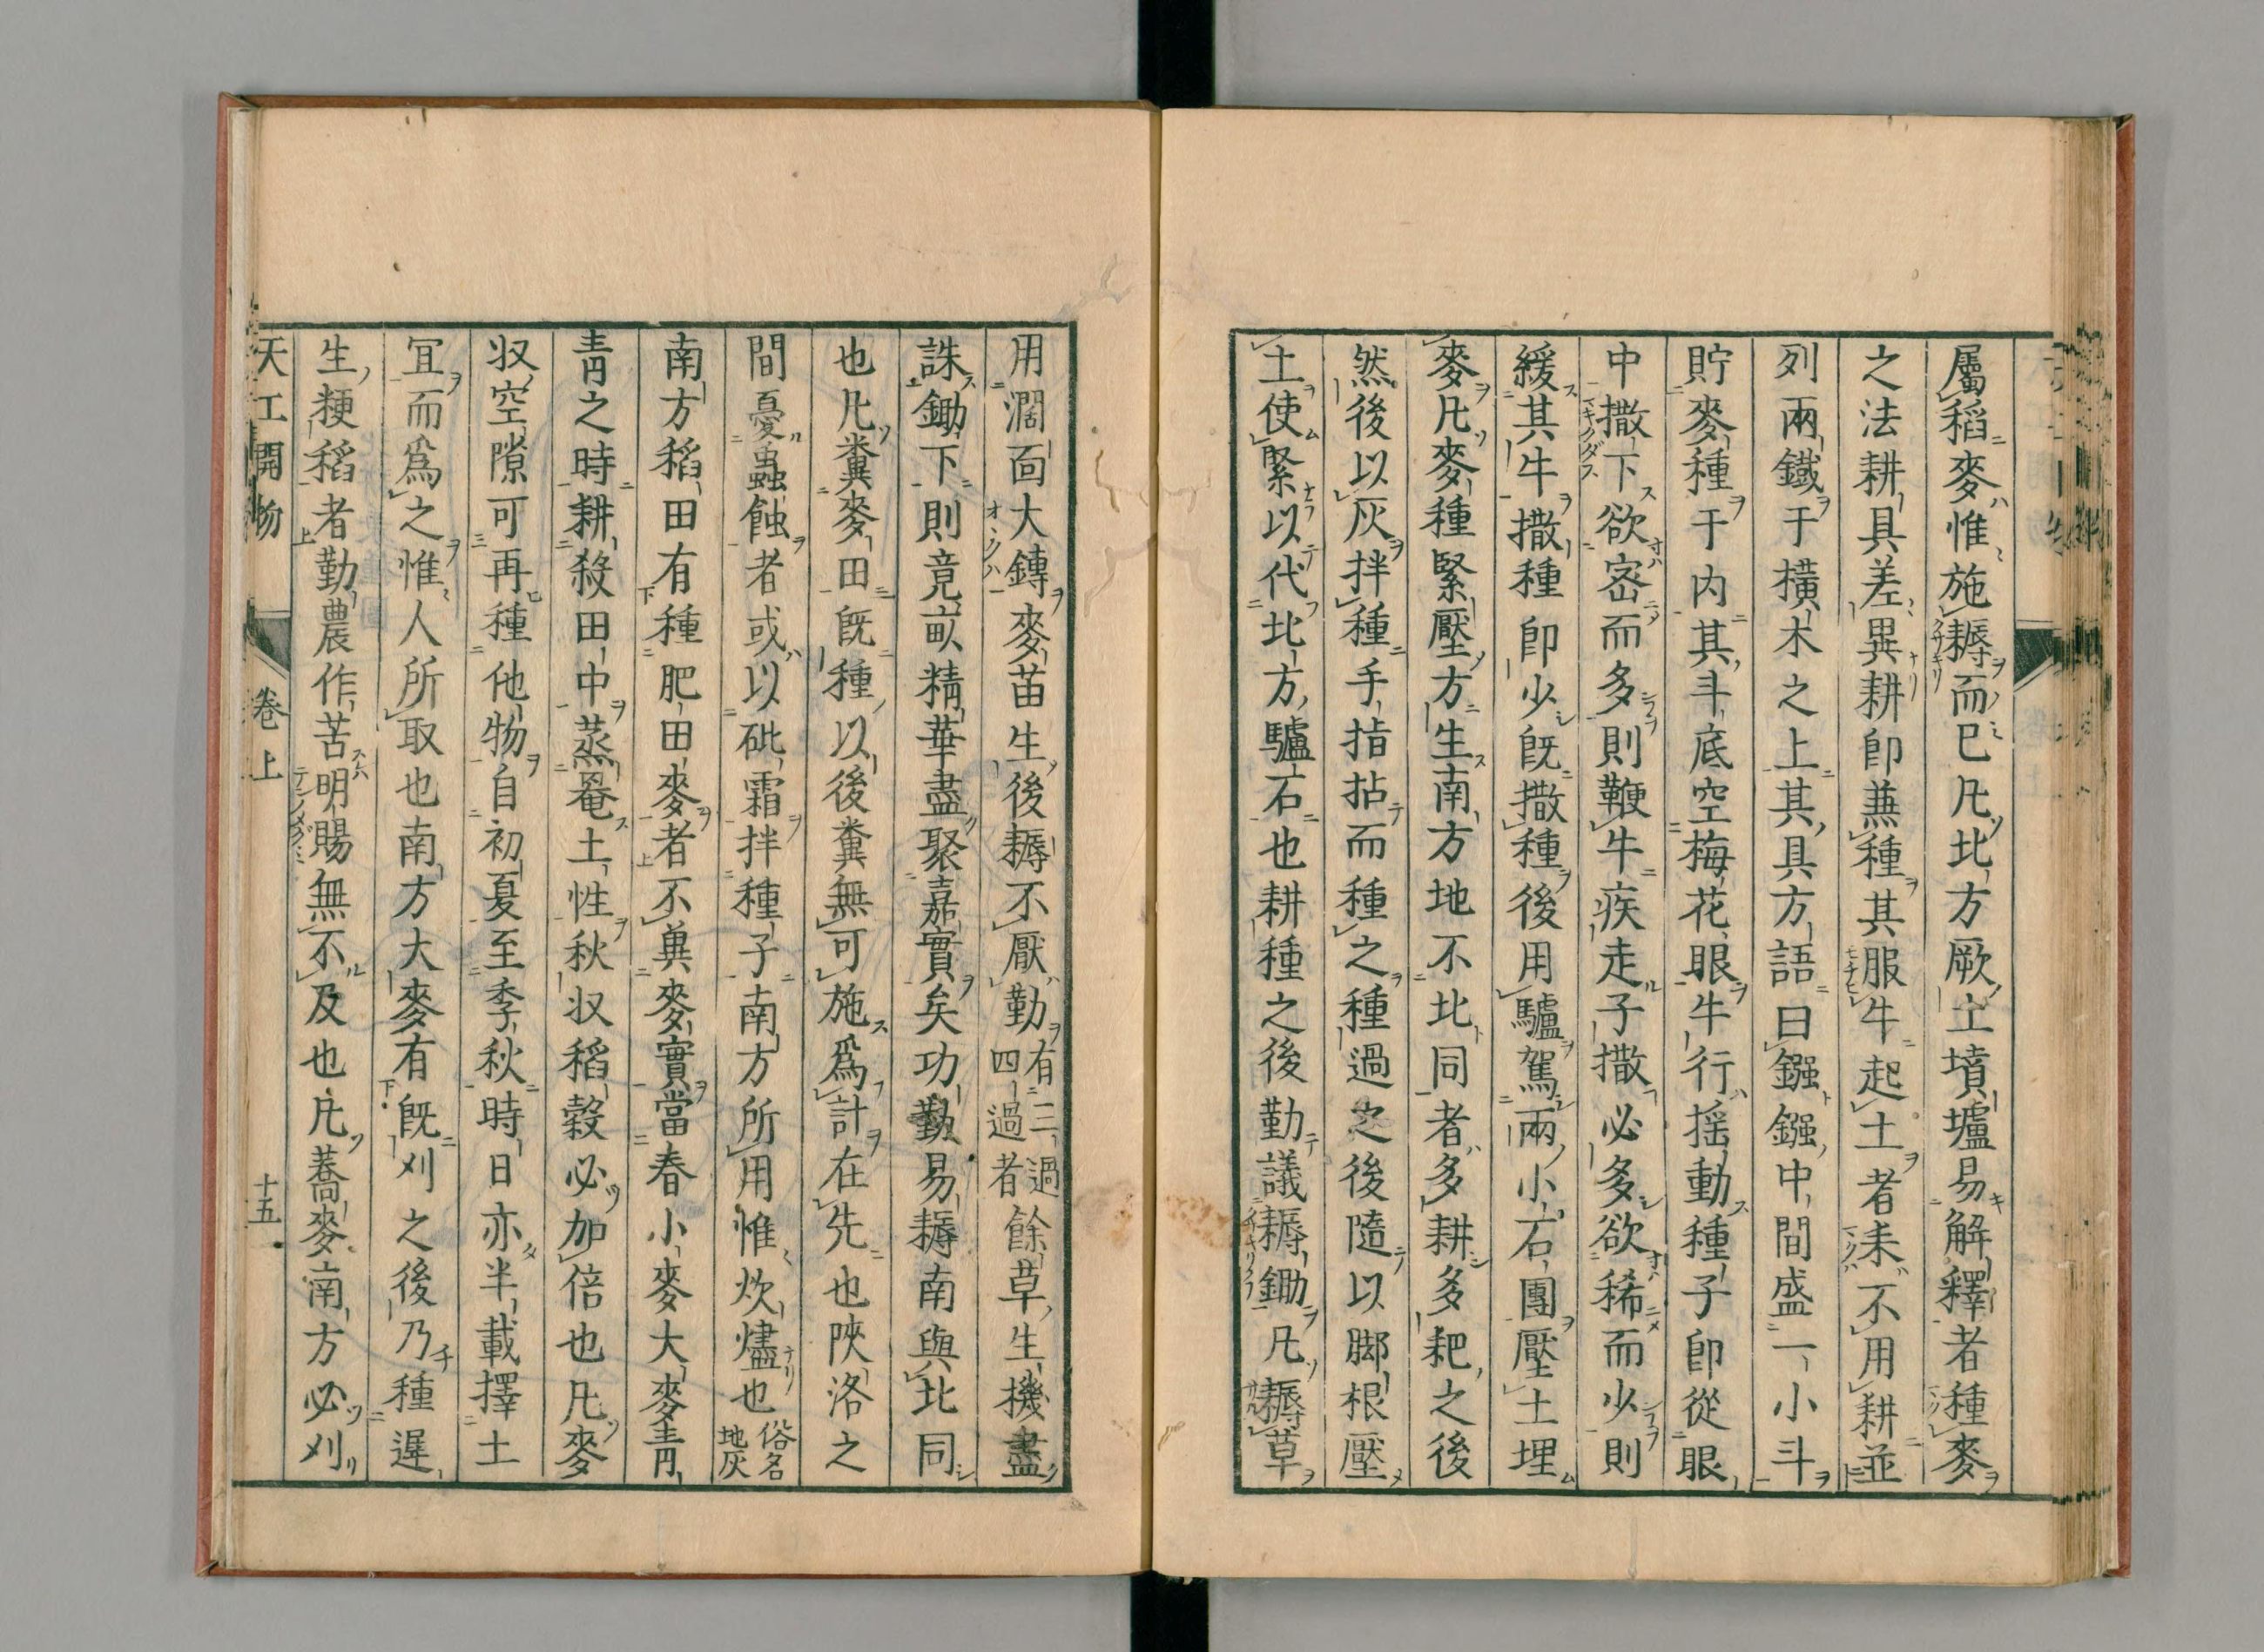 屬稻麥惟施耨而已凡北方厥土墳壚易解釋者種麥
之法耕具差異耕卽兼種其服牛起土者耒不用耕並
列兩鐵于橫木之上其具方語曰鏹鏹中間盛一小斗
貯麥種于内其斗底空梅花眼牛行摇動種子卽從眼
中撒下欲密而多則鞭牛疾走子撒必多欲稀而少則
緩其牛撒種卽少旣撒種後用驢駕兩小石團壓土埋
麥凡麥種緊壓方生南方地不北同者多耕多耙之後
然後以灰拌種手指拈而種之種過之後隨以脚根壓
土使緊以代北方驢石也耕種之後勤議耨鋤凡耨草
用濶面大鎛麥苗生後耨不厭勤有三過四過者餘草生機盡
誅鋤下則竟畝精華盡聚嘉實矣功勤易耨南與北同
也凡糞麥田旣種以後糞無可施爲計在先也陝洛之
間憂蟲蝕者或以砒霜拌種子南方所用惟炊燼也俗名地灰
南方稻田有種肥田麥者不糞麥實當春小麥大麥青
青之時耕殺田中蒸罨土性秋收稻穀必加倍也凡麥
収空隙可再種他物自初夏至季秋時日亦半載擇土
宜而爲之惟人所取也南方大麥有旣刈之後乃種遲
生粳稻者勤農作苦明賜無不及也凡蕎麥南方必刈
天工開物 卷上 十五